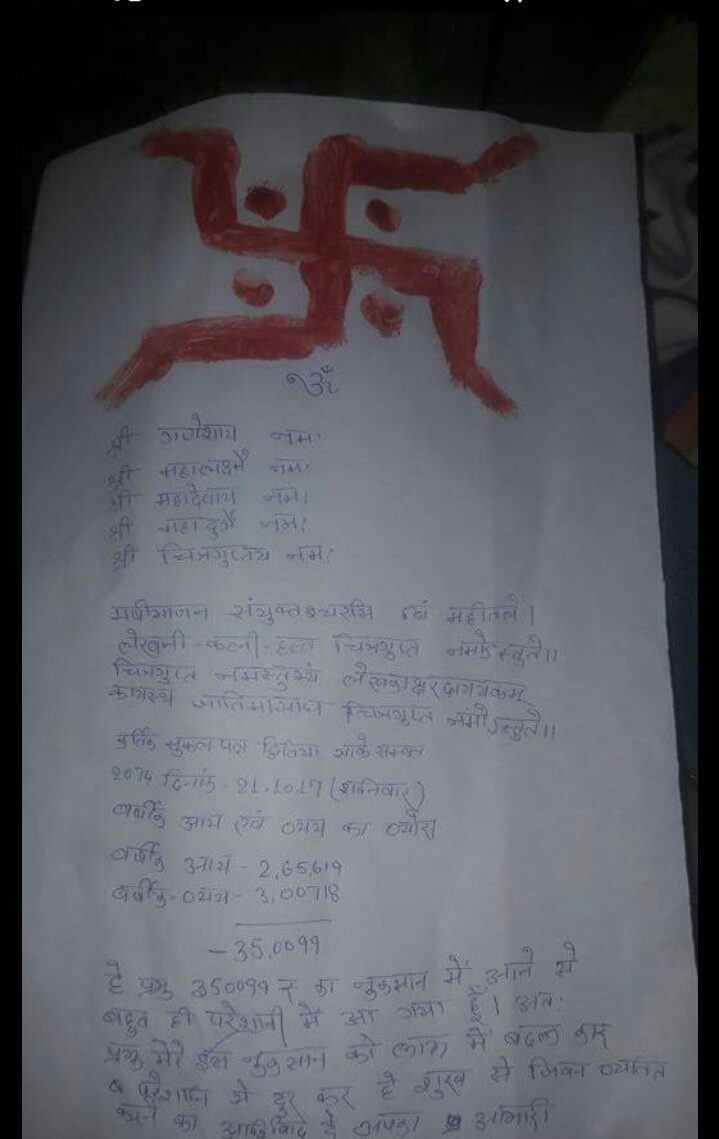 ॐ
श्री गणेशाय नमः
श्री महालक्ष्मै नमः
श्री महादेवाय नमः
श्री महादुर्गे नमः
श्री चित्रगुप्तय नमः
मसीभाजन संयुक्तश्चरसि त्वं महीतले।
लेखनी-कटनी-हस्त चित्रगुप्त नमोऽस्तुते॥
चित्रगुप्त नमस्तुभ्यं लेखकाक्षरदायकम्
कायस्थ जातिमासाध चित्रगुप्त नमोऽस्तुते॥
शुकल पक्ष द्वितिया शाके सम्वत
2074 दिनांक - 21.10.17 (शनिवार)
वर्षीक आय एवं व्यय का व्योरा
वर्षीक आय - 2,65,619
वर्षीक - व्यय - 3,00718
- 35,0099
हे प्रभु 350099 रु का नुकसान में आने से
बहुत ही परेशानी में आ गया हूँ। अतः
प्रभु मेरे इस नुकसान को लाभ में बदल कर
परेशानि से दुर कर हे शुख से जिवन व्यातित
करने का आर्शिवाद दे आपका आभारी